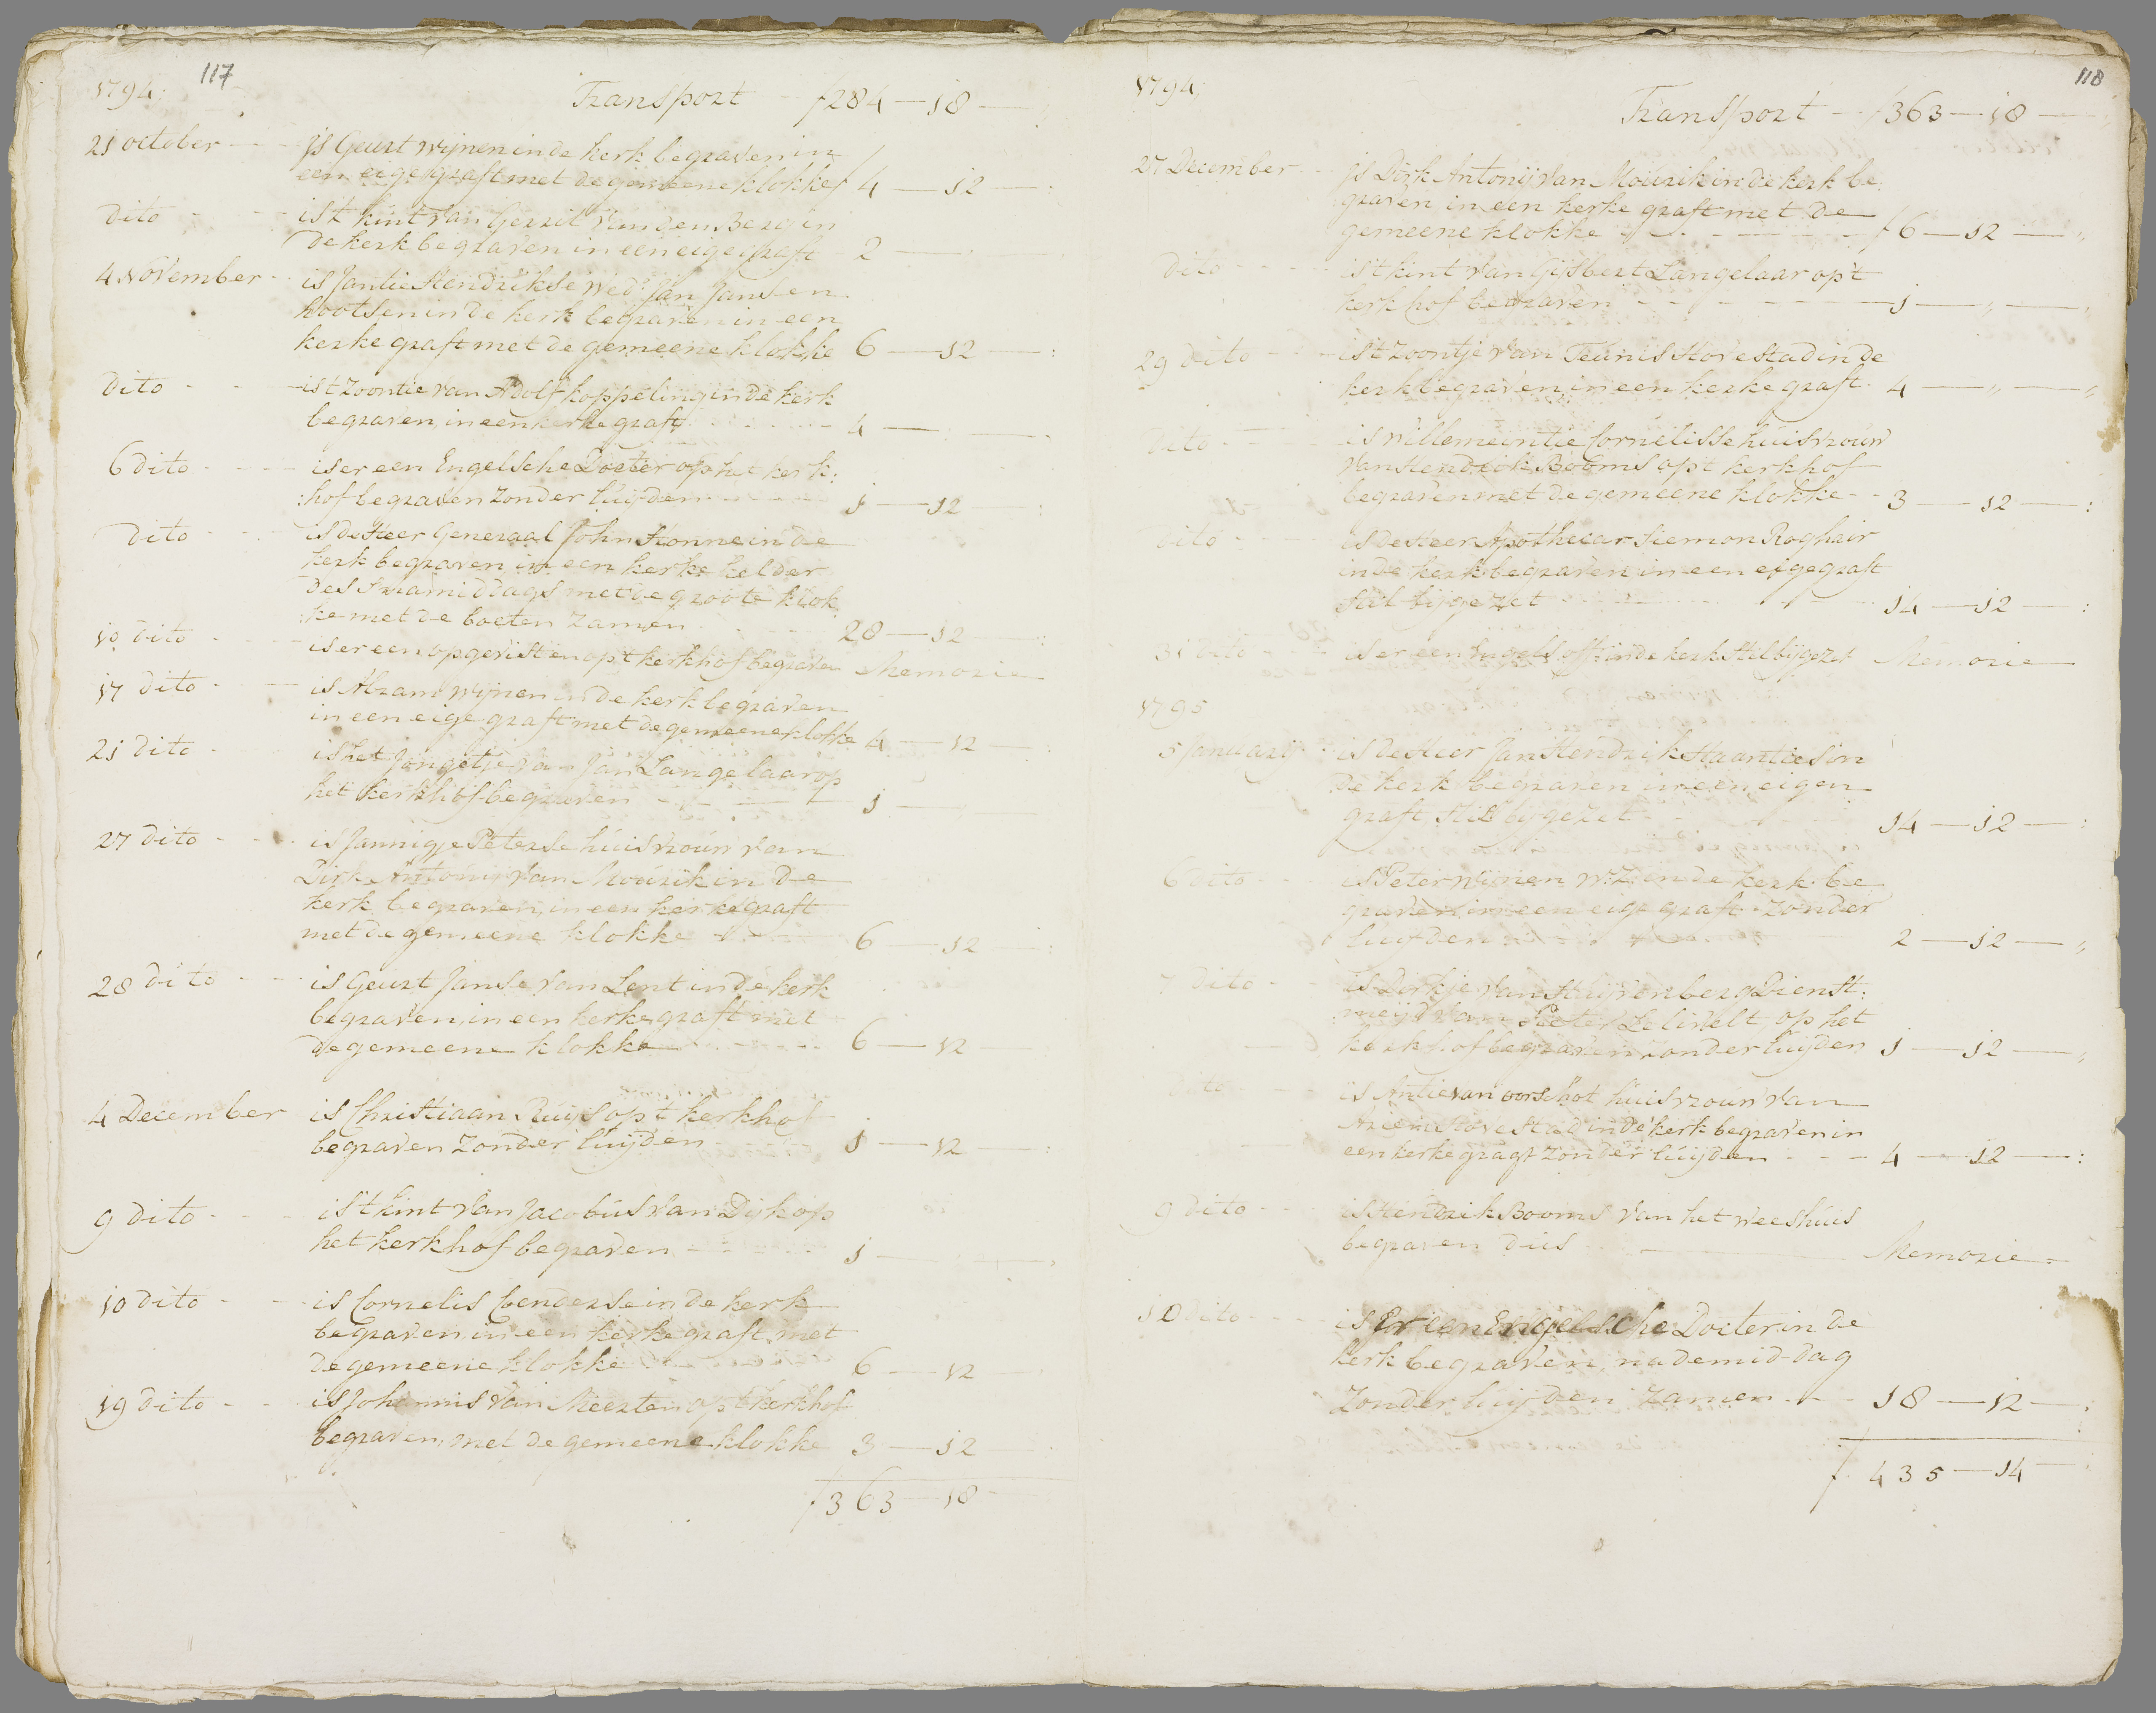 117
1794:
Transport - ƒ 284 - 18 -
21 october - - is Geurt Wijnen in de kerk begraven in
een eige graft met de gemeene klokke ƒ 4 - 12 - :
dito - - - is 't kint van Gerrit van den Berg in
de kerk begraven in een eige graft 2 -
4 November - is Jantie Hendrikse wed: Jan Jansen
hootsen in de kerk begraven in een
kerke graft met de gemeene klokke 6 - 12 - :
dito - - - is 't zoontie van Adolf koppeling in de kerk
begraven, in een kerke graft - - - 4 -
6 dito - - - is er een Engelsche Docter op het kerk:
:hof begraven zonder luijden - - - 1 - 12 - :
dito - - - is de Heer Generaal John in de
kerk begraven in een kerke kelder
des namiddags met de groote klok
:ke met de boeten zamen - - - 28 - 12 - :
10 dito - - - is er een op't kerkhof begraven Memorie
17 dito - - - is Abram Wijnen in de kerk begraven
in een eige graft met de gemeene klokke 4 - 12 - :
21 dito - is het Jongetje van Jan Langelaar op
het kerkhof begraven - - - 1 -
27 dito - - - is Jannigje Peterse huisvrouw van
Dirk Antonij van Mourik in de
kerk begraven, in een kerke graft
met de gemeene klokke - - 6 - 12 - :
28 dito - - is Geurt Janse van Lent in de kerk
begraven, in een kerke graft met
de gemeene klokke - - - 6 - 12 -
4 December is Christiaan Ruijs op 't kerkhof
begraven zonder luijden - - - 1 - 12 - :
9 dito - - - is 't kint van Jacobus van Dijk op
het kerkhof begraven - - - 1 -
10 dito - - - is Cornelis in de kerk
begraven in een kerke graft, met
de gemeene klokke - - - 6 - 12
19 dito - - is Johannis van Meerten op 't kerkhof
begraven, met de gemeene klokke 3 - 12
ƒ 363 - 18 -
118
1794,
Transport - - ƒ 363 - 18 -
27 December - is Dirk Antonij van Mourik in de kerk be:
graven in een kerke graft met de
gemeene klokke - - - ƒ 6 - 12 - "
dito - - - is 't kint van Gijsbert Langelaar op 't
kerkhof begraven - - - 1 - " -
29 dito - - - is 't zoontje van Teunis Hovestad in de
kerk begraven, in een kerke graft - 4 - " - "
dito - - is Willemeintie Cornelisse huisvrouw
van Hendrik Booms op 't kerkhof
begraven met de gemeene klokke - - 3 - 12 - :
dito - - - is de Heer Apothecar Siemon Roghair
in de kerk begraven, in een eige graft
stil bijgezet - - - 14 - 12 - :
31 dito - - is er een Engels off: in de kerk stil bijgezet Memorie
1795
5 Januarij - is de Heer Jan Hendrik in
de kerk begraven in een eigen
graft stil bijgezet - - - 14 - 12 - :
6 dito - - is Peter Wijnen W:Z: in de kerk be
graven, in een eige graft - zonder
luijden - - - 2 - 12 - "
7 dito - - is Dirkje van Stuijvenberg Dienst:
:meijd van Peeter op het
kerkhof begraven zonder luijden 1 - 12 - "
dito - - - is Antie van oorschot huisvrouw van
Hovestad in de kerk begraven in
een kerke gragt zonder luijden - - - 4 - 12 - :
9 dito - - - is Hendrik Booms van het weeshuis
begraven dus - - - Memorie -
10 dito - - - is Er een Engelsche Docter in de
kerk begraven, na de mid-dag
zonder luijden zamen - - - 18 - 12 - :
ƒ 435 - 14 -